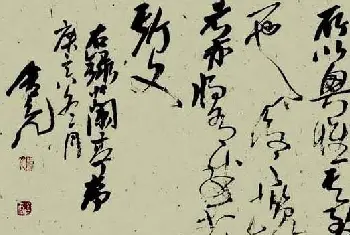 所以興懷其致
一也後之攬
者亦將有感於
斯文
右錄蘭亭序
庚寅冬月